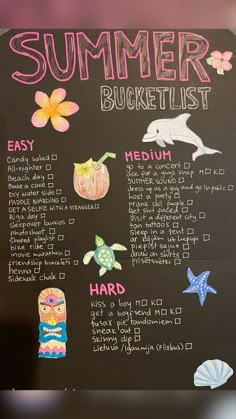 SUMMER
BUCKETLIST
EASY
Candy salad
All-nighter
Beach day
Base a cake
DIY water slide
PADDLE BOARDING
GET A SELFIE WITH A STRANGER
Riga day
sleepover laukos
photoshoot
shared playlist
bike ride
movie marathon
friendship bracelets
henna
Sidewalk chalk
MEDIUM
go to a concert
ask for a guys snap
SUMMER SOUNDS
dress up as a guy and go in public
host a party
prank call people
get shit faced
Visit a different city
tattoos
sleep in a tent
draw on shoes
HARD
kiss a boy
get a boyfriend
random
sneak out
skinny dip